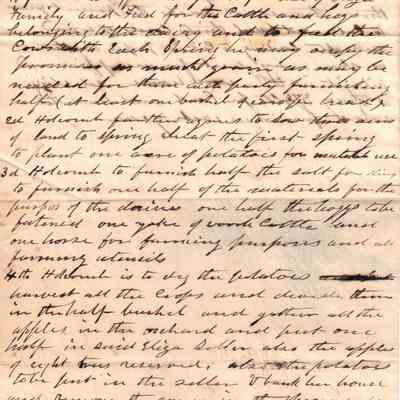 family and feed for the Cattle and hogs
belonging to the dairy and to feed the
Cows with Each Spring he may occupy the
premises as much grain as may be
needed for them each party furnishing
half (at least one bushel of
2d Holcomb further agrees to sow three acres
of land to Spring wheat the first spring
to plant one acre of potatoes for use
3d Holcomb to furnish half the salt for
to furnish one half of the materials for the
purpos of the dairies one half the hogs to be
fatened one yoke of work Cattle and
one horse for farming purposes and all
farming utensils
4th Holcomb is to dig the potatoes
harvest all the Crops and devide them
in the half bushel and gather all the
apples in the orchard and put one
half in said Eliza Seller also the apples
of eight trees reserved, also the potatoes
to be put in the seller & bank her house